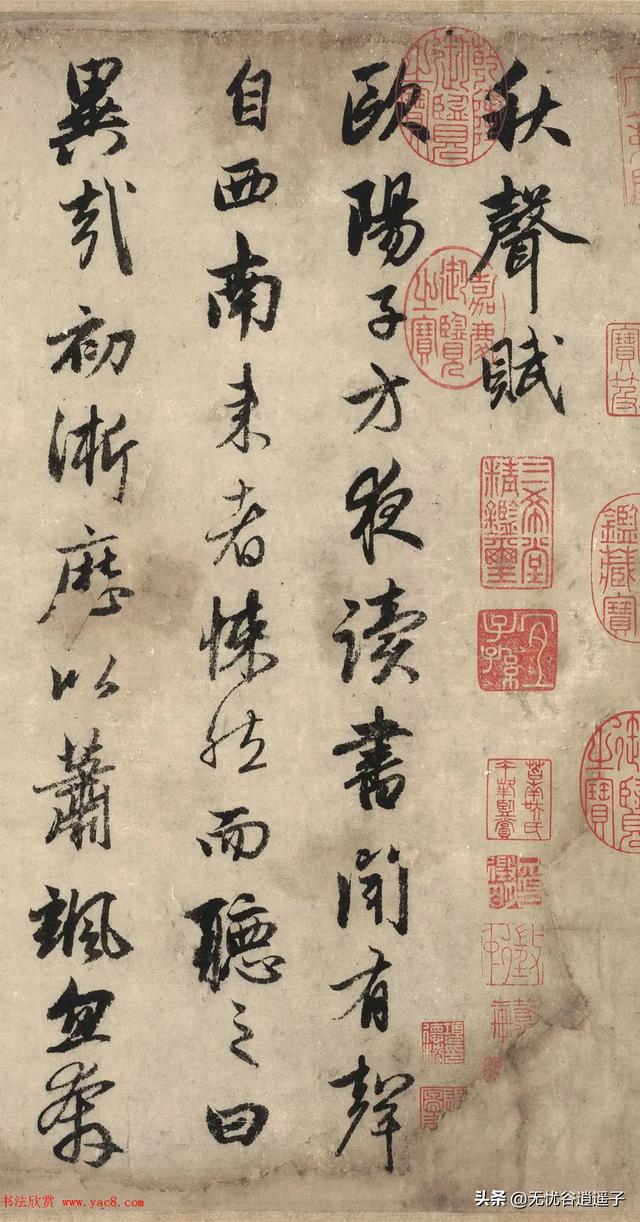 秋聲賦
歐陽子方夜讀書聞有聲
自西南来者悚然而聽之曰
異哉初淅瀝以蕭颯忽奔
乾隆御覽之寶
嘉慶御覽之寶
三希堂精鑑璽
宜子孫
寶笈
鑑藏寶
御覽之寶
书法欣赏 www.yac8.com
头条 @无忧谷逍遥子